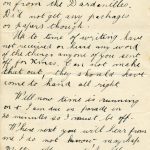 on from the Dardanelles.
Did not get any packages
or papers though.
Up to time of writing have
not received or heard any word
of the things anyone of you sent
off for Xmas. I can not make
that out, they should have
come to hand all right
Well now time is running
on & I am due on parade in
20 minutes so I must be off
Where next you will hear from
me I do not know, perhaps